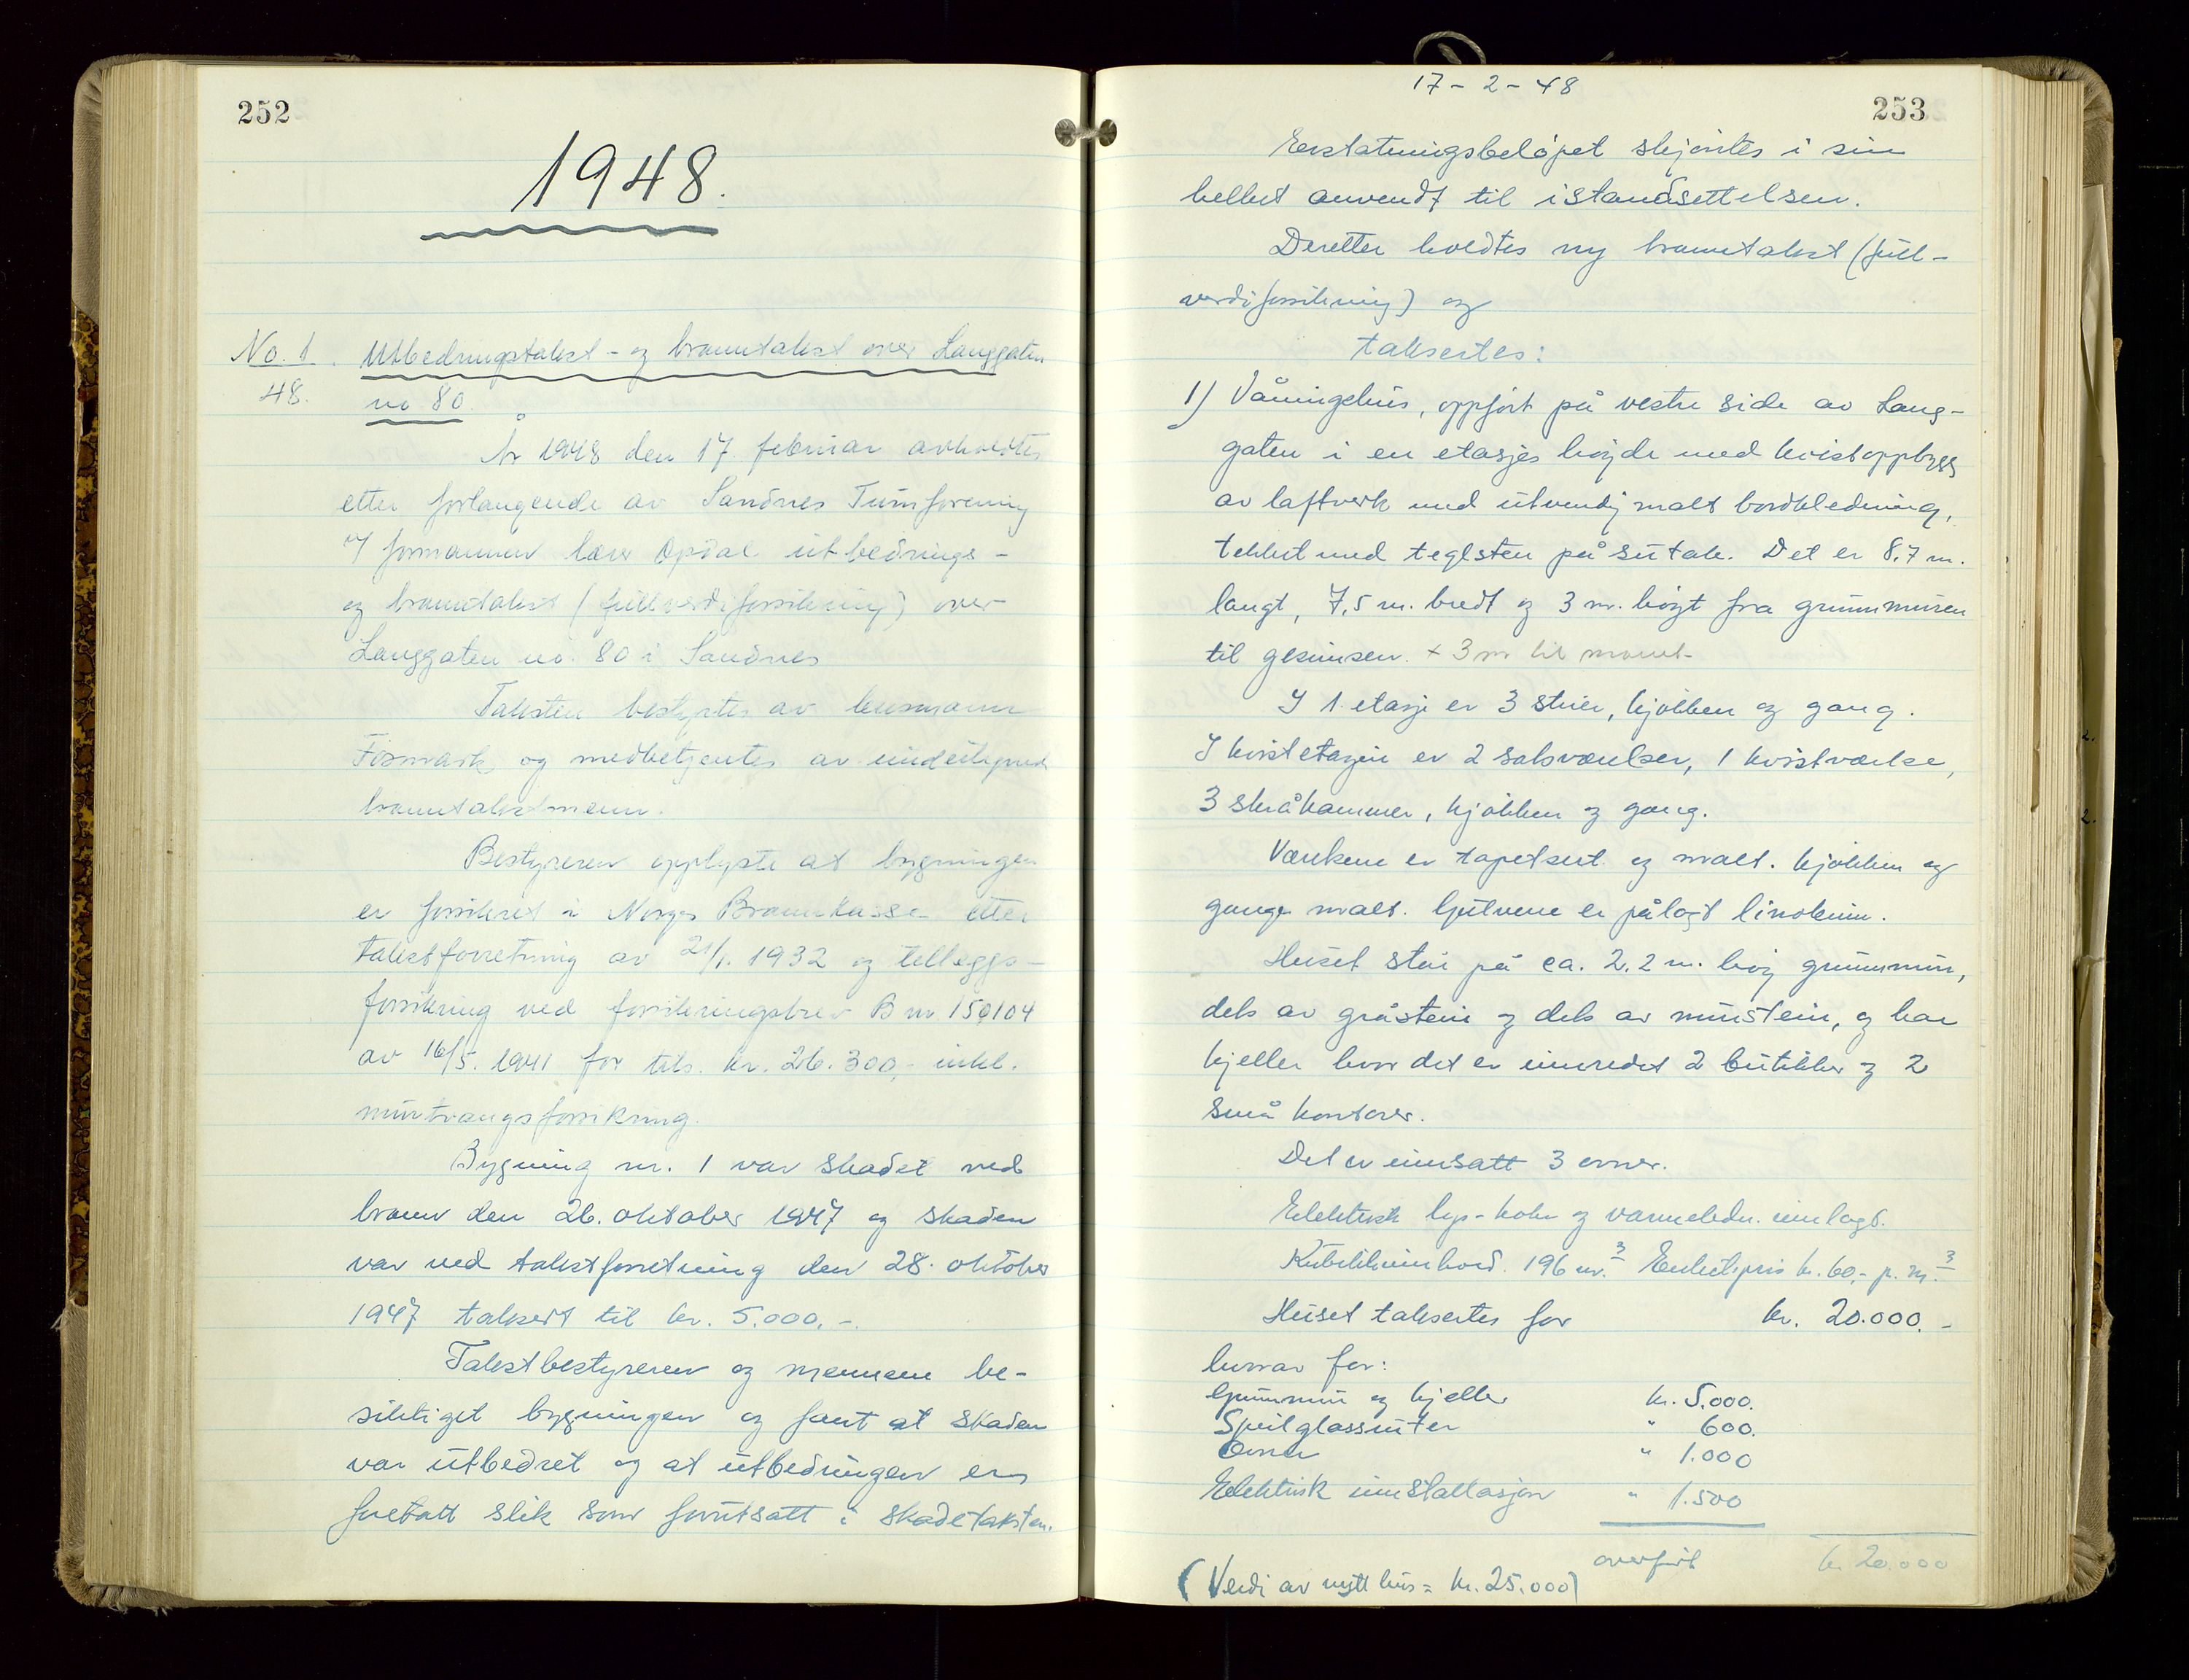 252
1948.
No. 1
48.
Utbedringstakst- og branntakst over Langgaten
no 80
År 1948 den 17. februar avholdtes
etter forlangende av Sandnes Turnforening
v/ formannen lærer Opdal utbedrings-
og branntakst (fullverdiforsikring) over
Langgaten no. 80 i Sandnes
Taksten bestyrtes av lensmann
Fosmark og medbetjentes av undertegnede
branntakstmenn.
Bestyreren opplyste at bygningen
er forsikret i Norges Brannkasse etter
takstforretning av 21/1. 1932 og tilleggs-
forsikring ved forsikringsbrev B nr 150104
av 16/5. 1941 for tils. kr. 26.300,- inkl.
murtvangsforsikring.
Bygning nr. 1 var skadet ved
brann den 26. oktober 1947 og skaden
var ved takstforretning den 28. oktober
1947 taksert til kr. 5.000.-.
Takstbestyreren og mennene be-
siktiget bygningen og fant at skaden
var utbedret og at utbedringen er
foretatt slik som forutsatt i skadetaksten.
17-2-48
253
Erstatningsbeløpet skjøntes i sin
helhet anvendt til istandsettelsen.
Deretter holdtes ny branntakst (full-
verdiforsikring) og
taksertes:
1) Våningshus, oppført på vestre side av Lang-
gaten i en etasjes høyde med kvistoppbygg
av laftverk med utvendig malt bordkledning,
tekket med teglsten på sutak. Det er 8,7 m.
langt, 7,5 m. bredt og 3 m. høgt fra grunnmuren
til gesimsen. + 3 m til mønet
I 1 etasje er 3 stuer, kjøkken og gang.
I kvistetagen er 2 salsværelser, 1 kvistværelse,
3 skråkammer, kjøkken og gang.
Værelsene er tapetsert og malt. kjøkken og
gange malt. Gulvene er pålagt linoleum.
Huset står på ca. 2,2 m. høg grunnmur,
dels av gråstein og dels av murstein, og har
kjeller hvor det er innredet 2 butikker og 2
små kontorer.
Det er innsatt 3 ovner.
Elektrisk lys- koke og varmeledn. innlagt.
Kubikkinnhold. 196 m.3 Enhetspris kr. 60,- p. m.3
Huset taksertes for kr. 20.000.-
hvorav for:
Grunnmur og kjeller kr. 5.000.
Speilglassruter " 600.
Ovner " 1.000
Elektrisk innstallasjon " 1.500
overført kr. 20.000
(Verdi av nytt hus = kr. 25.000)